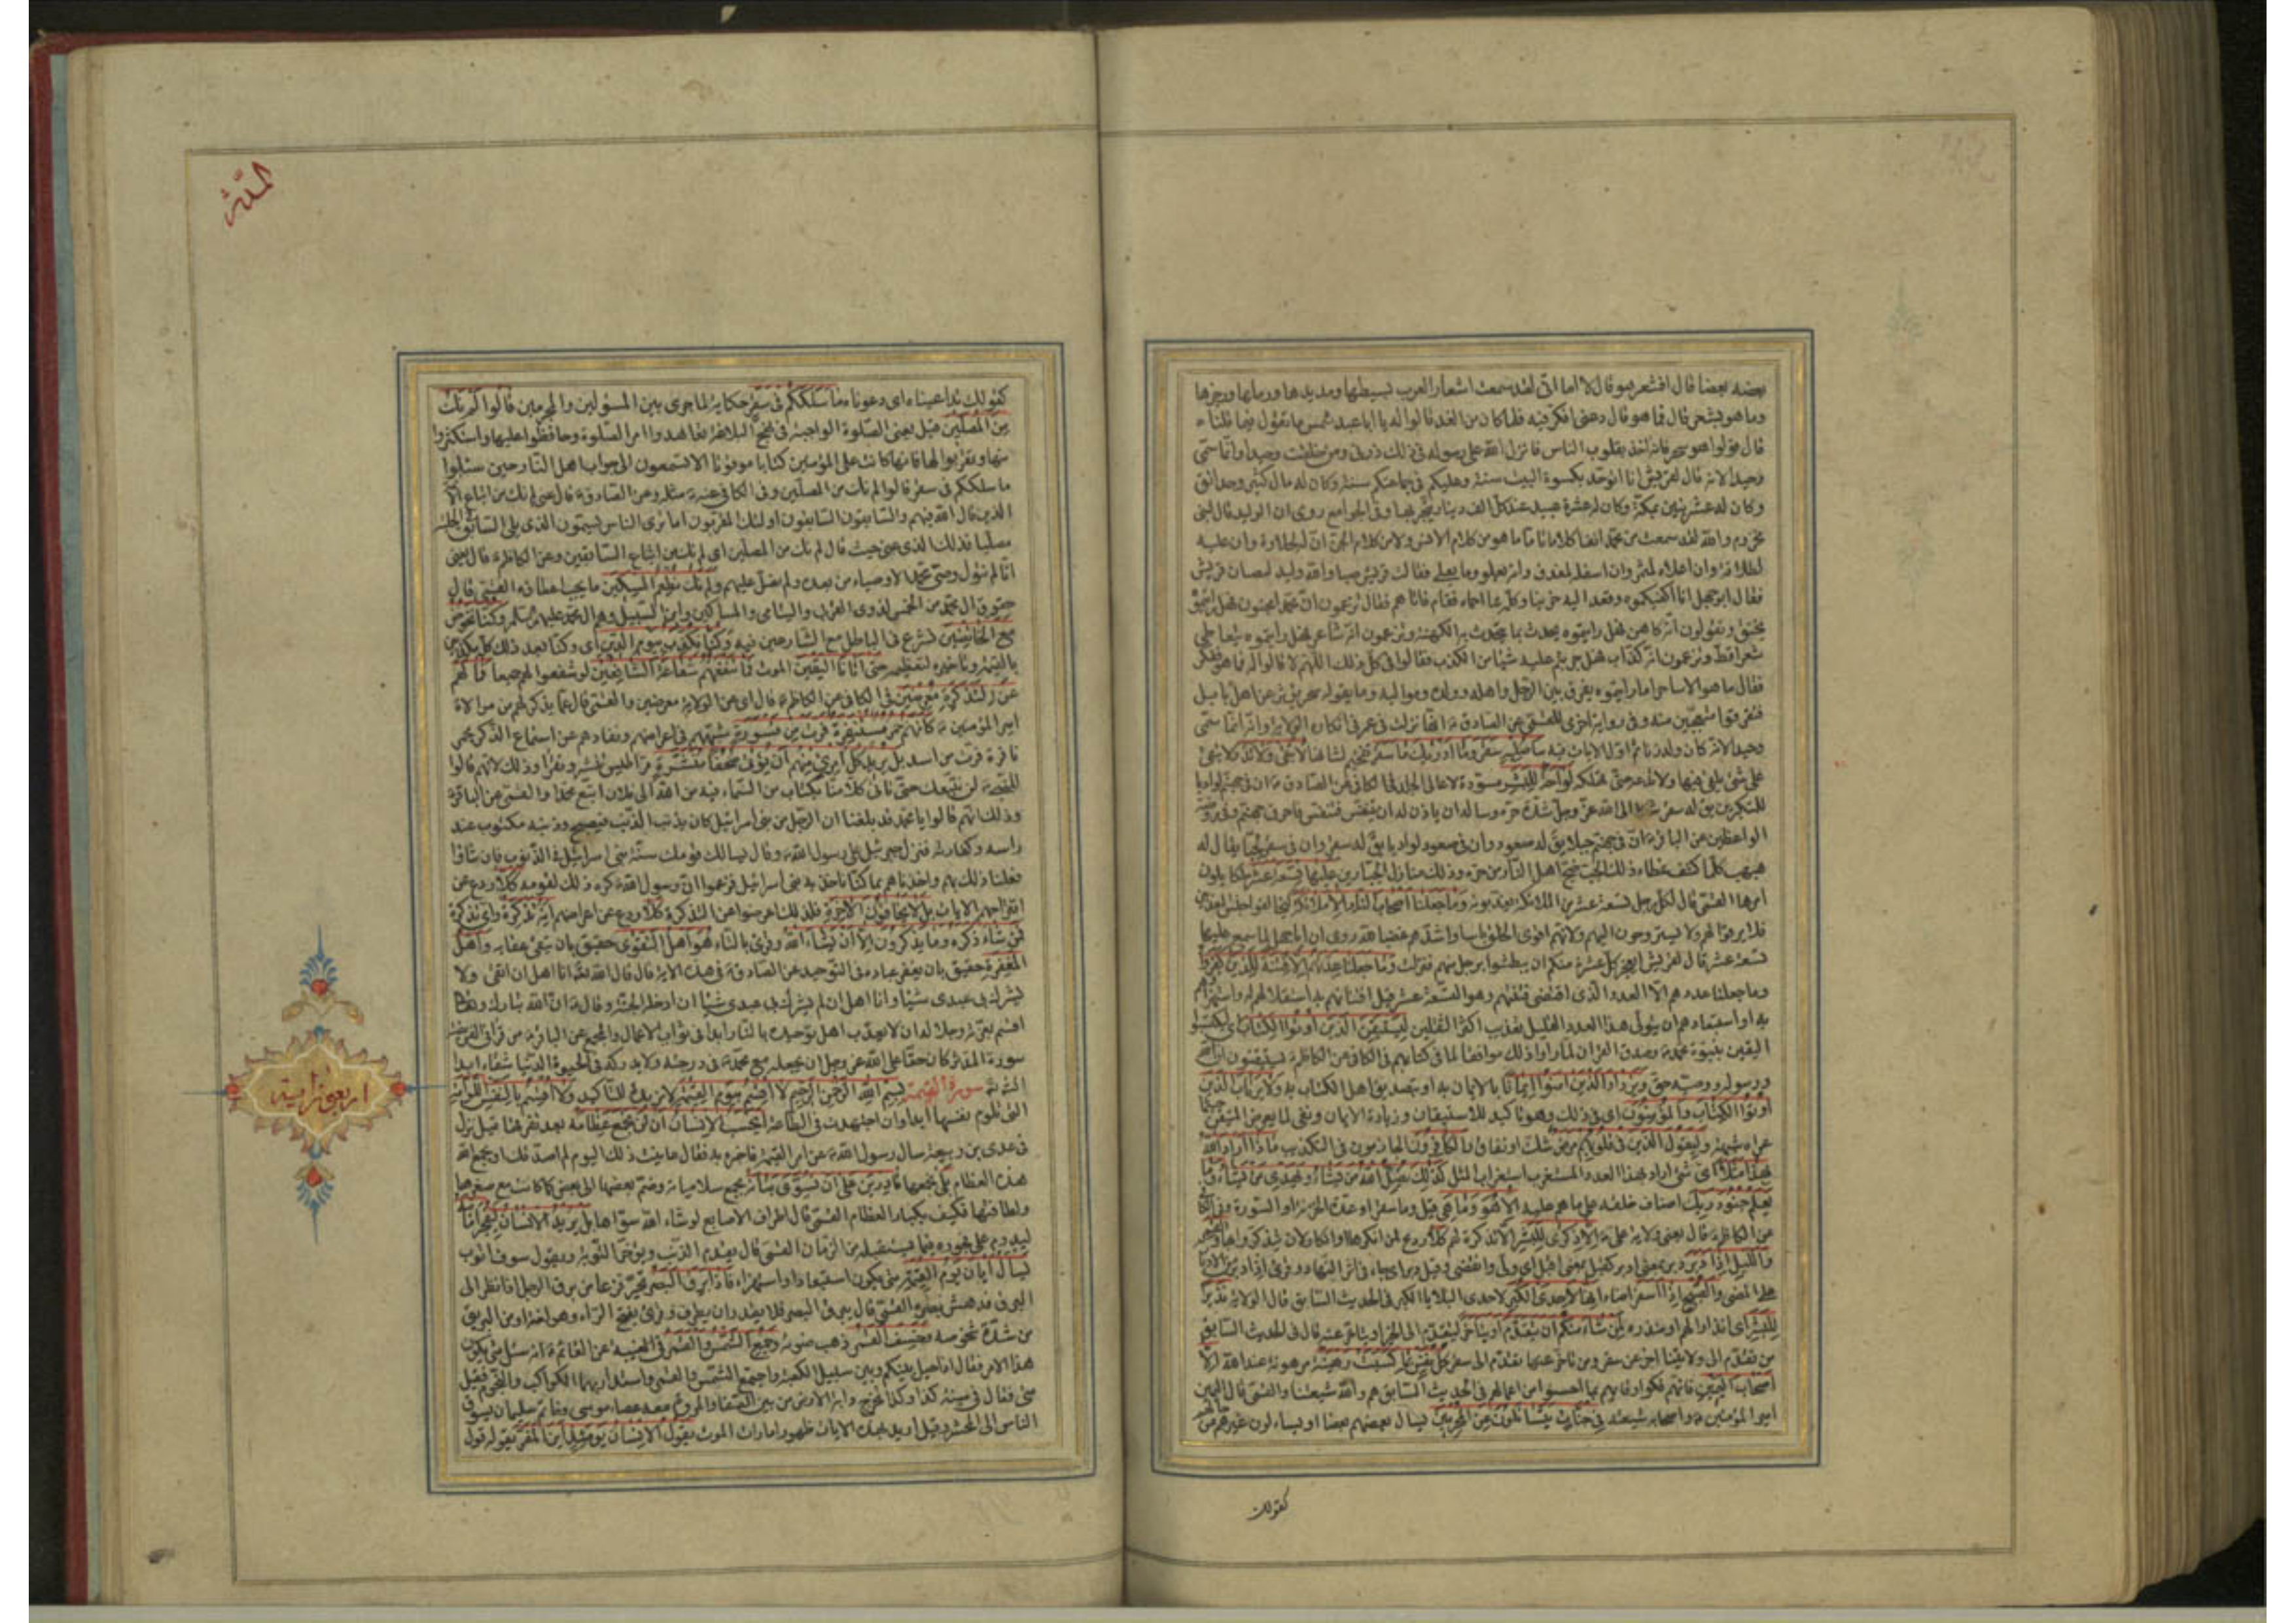 بعضه بعضا قال افشعر هو قال لا اما انى لقد سمعت اشعار العرب بسيطها ومديدها ورملها ورجزها
وما هو بشعر قال فما هو قال دعنى افكر فيه فلما كان من الغد قالوا له يا ابا عبد شمس ما تقول فيما قلناه
قال قولوا هو سحر فانه اخذ بقلوب الناس فانزل الله على رسوله فى ذلك ذرنى ومن خلقت وحيدا وانما سمى
وحيدا لانه قال لقريش انا اتوحد بكسوة البيت سنة وعليكم فى جماعتكم سنة وكان له مال كثير وحدائق
وكان له عشر بنين بمكة وكان له عشرة عبيد عند كل عبد الف دينار يتجر بها وفى الجوامع روى ان الوليد قال لبنى
مخزوم والله لقد سمعت من محمد انفا كلاما ما هو من كلام الانس ولا من كلام الجن ان له لحلاوة وان عليه
لطلاوة وان اعلاه لمثمر وان اسفله لمغدق وانه يعلو وما يعلى فقالت قريش صبا والله وليد ليصبان قريش
فقال ابو جهل انا اكفيكموه وقعد اليه حزينا وكلمه بما احماه فقام فاتاهم فقال تزعمون ان محمدا مجنون فهل رايتموه
يخنق وتقولون انه كاهن فهل رايتموه يحدث بما يتحدث به الكهنة وتزعمون انه شاعر فهل رايتموه يتعاطى
شعرا قط وتزعمون انه كذاب فهل جربتم عليه شيئا من الكذب فقالوا فى كل ذلك اللهم لا قالوا له فما هو ففكر
فقال ما هو الا ساحر اما رايتموه يفرق بين الرجل واهله وولده ومواليه وما يقوله سحر يؤثر عن اهل بابل
فتفرقوا متعجبين منه وفى رواية اخرى للقمى عن الصادق ع انها نزلت فى عمر فى انكاره الولاية وانه انما سمى
وحيدا لانه كان ولد زنا ثم اول الايات فيه ساصليه سقر وما ادريك ما سقر تفخيم لشانها لا تبقى ولا تذر لا تبقى
على شئ يلقى فيها ولا تدعه حتى تهلكه لواحة للبشر مسودة لاعالى الجلد فى الكافى عن الصادق ع ان فى جهنم لواديا
للمتكبرين يق له سقر شكا الى الله عز وجل شدة حره وساله ان ياذن له ان يتنفس فتنفس فاحرق جهنم وفى روضة
الواعظين عن الباقر ع ان فى جهنم جبلا يق له صعود وان فى صعود لواديا يق له سقر وان فى سقر لجبا يقال له
هبهب كلما كشف غطاء ذلك الجب ضج اهل النار من حره وذلك منازل الجبارين عليها تسعة عشر ملكا يلون
امرها القمى قال لكل رجل تسعة عشر من الملائكة يعذبونه وما جعلنا اصحاب النار الا ملائكة ليخالفوا جنس المعذبين
فلا يرقوا لهم ولا يستروحون اليهم ولانهم اقوى الخلق باسا واشدهم غضبا لله روى ان ابا جهل لما سمع عليها
تسعة عشر قال لقريش ايعجز كل عشرة منكم ان يبطشوا برجل منهم فنزلت وما جعلنا عدتهم الا فتنة للذين كفروا
وما جعلنا عددهم الا العدد الذى اقتضى فتنتهم وهو التسعة عشر قيل افتتانهم به استقلالهم له واستهزاؤهم
به او استبعادهم ان يتولى هذا العدد القليل تعذيب اكثر الثقلين ليستيقن الذين اوتوا الكتاب اى ليكتسبوا
اليقين بنبوة محمد ص وصدق القران لما راوا ذلك موافقا لما فى كتابهم فى الكافى عن الكاظم ع يستيقنون ان الله
ورسوله ووصيه حق ويزداد الذين امنوا ايمانا بالايمان به او بتصديق اهل الكتاب به ولا يرتاب الذين
اوتوا الكتاب والمؤمنون اى فى ذلك وهو تاكيد للاستيقان وزيادة الايمان ونفى لما يعرض المتيقن حيثما
عراه شبهة وليقول الذين فى قلوبهم مرض شك او نفاق والكافرون الجازمون فى التكذيب ماذا اراد الله
بهذا مثلا اى شئ اراد بهذا العدد المستغرب استغراب المثل كذلك يضل الله من يشاء ويهدى من يشاء وما
يعلم جنود ربك اصناف خلقه على ما هم عليه الا هو وما هى قيل وما سقر او عدة الخزنة او السورة وفى الكافى
عن الكاظم ع قال يعنى ولاية على ع الا ذكرى للبشر الا تذكرة لهم كلا ردع لمن انكرها او انكار لان يتذكروا بها والقمر
والليل اذا دبر دبر بمعنى ادبر كقبل بمعنى اقبل اى ولى وانقضى وقيل دبر اى جاء فى اثر النهار وقرئ اذ ادبر من الادبار
على المضى والصبح اذا اسفر اضاء انها لاحدى الكبر لاحدى البلايا الكبر فى الحديث السابق قال الولاية نذيرا
للبشر اى انذارا لهم او منذرة لمن شاء منكم ان يتقدم او يتاخر ليتقدم الى الخير او يتاخر عنه قال فى الحديث السابق
من تقدم الى ولايتنا اخر عن سقر ومن تاخر عنها تقدم الى سقر كل نفس بما كسبت رهينة مرهونة عند الله الا
اصحاب اليمين فانهم فكوا رقابهم بما احسنوا من اعمالهم فى الحديث السابق هم والله شيعتنا والقمى قال اليمين
امير المؤمنين ع واصحابه شيعته فى جنات يتسائلون عن المجرمين يسال بعضهم بعضا او يسالون غيرهم عن حالهم
كقولك
المدثر
كقولك تداعيناه اى دعوناه ما سلككم فى سقر حكاية لما جرى بين المسؤلين والمجرمين قالوا لم نك
من المصلين قيل يعنى الصلوة الواجبة فى نهج البلاغة تعاهدوا امر الصلوة وحافظوا عليها واستكثروا
منها وتقربوا بها فانها كانت على المؤمنين كتابا موقوتا الا تسمعون الى جواب اهل النار حين سئلوا
ما سلككم فى سقر قالوا لم نك من المصلين وفى الكافى عنه ع مثله وعن الصادق ع قال عنى لم نك من اتباع الائمة
الذين قال الله فيهم والسابقون السابقون اولئك المقربون اما ترى الناس يسمون الذى يلى السابق فى الحلبة
مصليا فذلك الذى عنى حيث قال لم نك من المصلين اى لم نك من اتباع السابقين وعن الكاظم ع قال يعنى
انا لم نتول وصى محمد والاوصياء من بعده ولم نصل عليهم ولم نك نطعم المسكين ما يجب اعطاؤه القمى قال
حقوق ال محمد من الخمس لذوى القربى واليتامى والمساكين وابن السبيل وهم ال محمد عليهم سلم وكنا نخوض
مع الخائضين نشرع فى الباطل مع الشارعين فيه وكنا نكذب بيوم الدين اى وكنا بعد ذلك كله مكذبين
بالقيمة وتاخيره لتعظيمه حتى اتانا اليقين الموت فما تنفعهم شفاعة الشافعين لو شفعوا لهم جميعا فما لهم
عن التذكرة معرضين فى الكافى عن الكاظم ع قال اى عن الولاية معرضين والقمى قال عما يذكر لهم من موالاة
امير المؤمنين ع كانهم حمر مستنفرة فرت من قسورة شبههم فى اعراضهم ونفارهم عن استماع الذكر بحمر
نافرة فرت من اسد بل يريد كل امرئ منهم ان يؤتى صحفا منشرة قراطيس تنشر وتقرا وذلك لانهم قالوا
للنبى ص لن نتبعك حتى تاتى كلا منا بكتاب من السماء فيه من الله الى فلان اتبع محمدا والقمى عن الباقر ع
وذلك انهم قالوا يا محمد قد بلغنا ان الرجل من بنى اسرائيل كان يذنب الذنب فيصبح وذنبه مكتوب عند
راسه وكفارته فنزل جبرئيل على رسول الله ص وقال يسالك قومك سنة بنى اسرائيل فى الذنوب فان شاؤا
فعلنا ذلك بهم واخذناهم بما كنا ناخذ به بنى اسرائيل فزعموا ان رسول الله ص كره ذلك لقومه كلا ردع عن
اقتراحهم الايات بل لا يخافون الاخرة فلذلك اعرضوا عن التذكرة كلا ردع عن اعراضهم انه تذكرة واى تذكرة
فمن شاء ذكره وما يذكرون الا ان يشاء الله وقرئ بالتاء هو اهل التقوى حقيق بان يتقى عقابه واهل
المغفرة حقيق بان يغفر عباده فى التوحيد عن الصادق ع فى هذه الاية قال قال الله تعالى انا اهل ان اتقى ولا
يشرك بى عبدى شيئا وانا اهل ان لم يشرك بى عبدى شيئا ان ادخله الجنة وقال ع ان الله تبارك وتعالى
اقسم بعزته وجلاله ان لا يعذب اهل توحيده بالنار ابدا فى ثواب الاعمال والمجمع عن الباقر ع من قرا فى الفريضة
سورة المدثر كان حقا على الله عز وجل ان يجعله مع محمد ص فى درجته ولا يدركه فى الحيوة الدنيا شقاء ابدا
انشاء الله سورة القيمة بسم الله الرحمن الرحيم لا اقسم بيوم القيمة لا مزيدة للتاكيد ولا اقسم بالنفس اللوامة
التى تلوم نفسها ابدا وان اجتهدت فى الطاعة ايحسب الانسان ان لن نجمع عظامه بعد تفرقها قيل نزل
فى عدى بن ربيعة سال رسول الله ص عن امر القيمة فاخبره به فقال لو عاينت ذلك اليوم لم اصدقك او يجمع الله
هذه العظام بلى نجمعها قادرين على ان نسوى بنانه بجمع سلامياته وضم بعضها الى بعض كما كانت مع صغرها
ولطافتها فكيف بكبار العظام القمى قال اطراف الاصابع لو شاء الله سواها بل يريد الانسان ليفجر امامه
ليدوم على فجوره فيما يستقبله من الزمان القمى قال يقدم الذنب ويؤخر التوبة ويقول سوف اتوب
يسال ايان يوم القيمة متى يكون استبعادا واستهزاء فاذا برق البصر تحير فزعا من برق الرجل اذا نظر الى
البرق فدهش بصره القمى قال يبرق البصر فلا يقدر ان يطرف وقرئ بفتح الراء وهو لغة او من البريق
من شدة شخوصه وخسف القمر ذهب ضوئه وجمع الشمس والقمر فى الغيبة عن القائم ع انه سئل متى يكون
هذا الامر فقال اذا حيل بينكم وبين سبيل الكعبة واجتمع الشمس والقمر واستدار بهما الكواكب والنجوم فقيل
متى فقال فى سنة كذا وكذا تخرج دابة الارض من بين الصفا والمروة معه عصا موسى وخاتم سليمان يسوق
الناس الى المحشر وقيل اريد بهذه الايات ظهور امارات الموت يقول الانسان يومئذ اين المفر يقوله قول